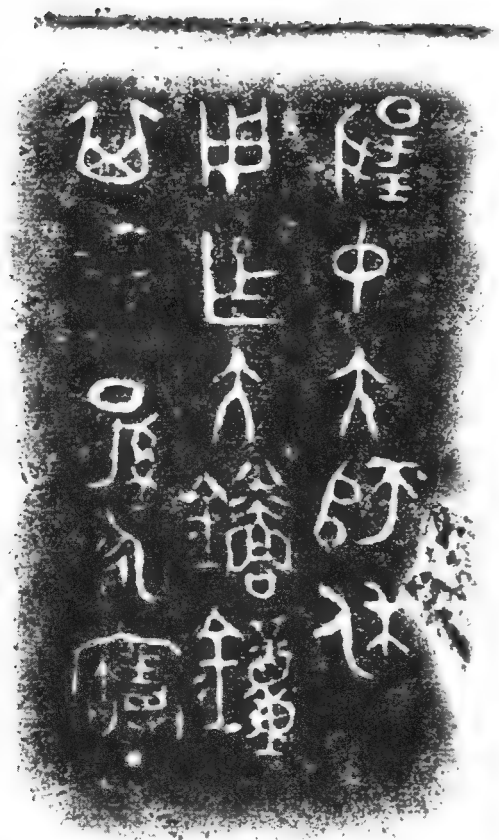 揚中大師休
用乍大鑰鐘
其孫永寶